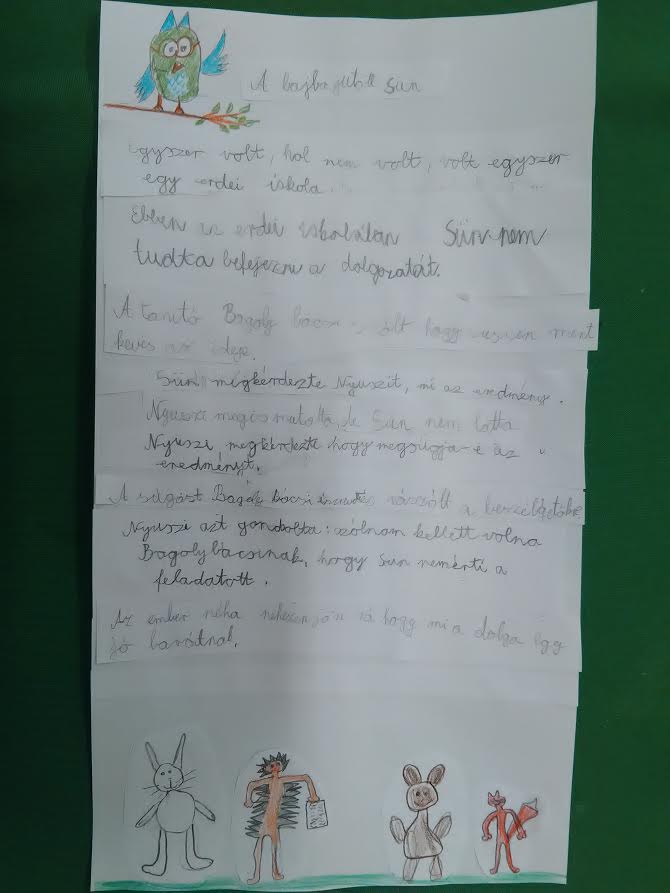 A bajba jutott Sün
Egyszer volt, hol nem volt, volt egyszer
egy erdei iskola.
Ebben az erdei iskolában Sün nem
tudta befejezni a dolgozatát.
A tanító Bagoly bácsi szólt hogy mert
kevés az ideje.
Sün megkérdezte Nyuszit, mi az eredmény.
Nyuszi megmutatta, de Sün nem látta
Nyuszi megkérdezte hogy megsúgja-e az
eredményt.
A súgást Bagoly bácsi rászólt a beszélgetőkre
Nyuszi azt gondolta: szólnom kellett volna
Bagoly bácsinak, hogy sün nem érti a
feladatott.
Az ember néha nehezen jön rá hogy mi a dolga egy
jó barátnak.